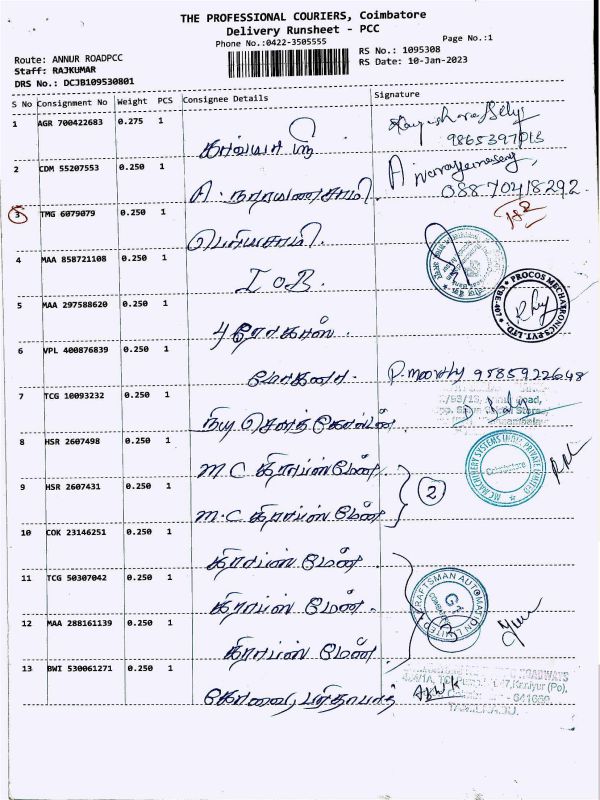 THE PROFESSIONAL COURIERS, Coimbatore
Delivery Runsheet - PCC
Phone No.:0422-3505555
Page No.:1
Route: ANNUR ROADPCC
RS No.: 1095308
Staff: RAJKUMAR
RS Date: 10-Jan-2023
DRS No.: DCJB109530801
S No Consignment No Weight PCS Consignee Details Signature
1 AGR 700422683 0.275 1
2 CDM 55207553 0.250 1 A. நாராயணசாமி.
08870418292
3 TMG 6079079 0.250 1 பெரியசாமி.
4 MAA 858721108 0.250 1 I O B.
5 MAA 297588620 0.250 1
PROCOS MECHATRONICS PVT. LTD.
6 VPL 400876839 0.250 1 மோகனா. P. moorthy 9585922648
7 TCG 10093232 0.250 1
8 HSR 2607498 0.250 1 M.C கிராப்ஸ்மேன்
MC MACHINERY SYSTEMS INDIA PRIVATE LIMITED
Coimbatore
9 HSR 2607431 0.250 1 M.C கிராப்ஸ்மேன் 2
10 COK 23146251 0.250 1 கிராப்ஸ்மேன்
11 TCG 50307042 0.250 1 கிராப்ஸ்மேன்.
CRAFTSMAN AUTOMATION LIMITED
12 MAA 288161139 0.250 1 கிராப்ஸ்மேன் 3
13 BWI 530061271 0.250 1 கோவை, பிரதாபாத்